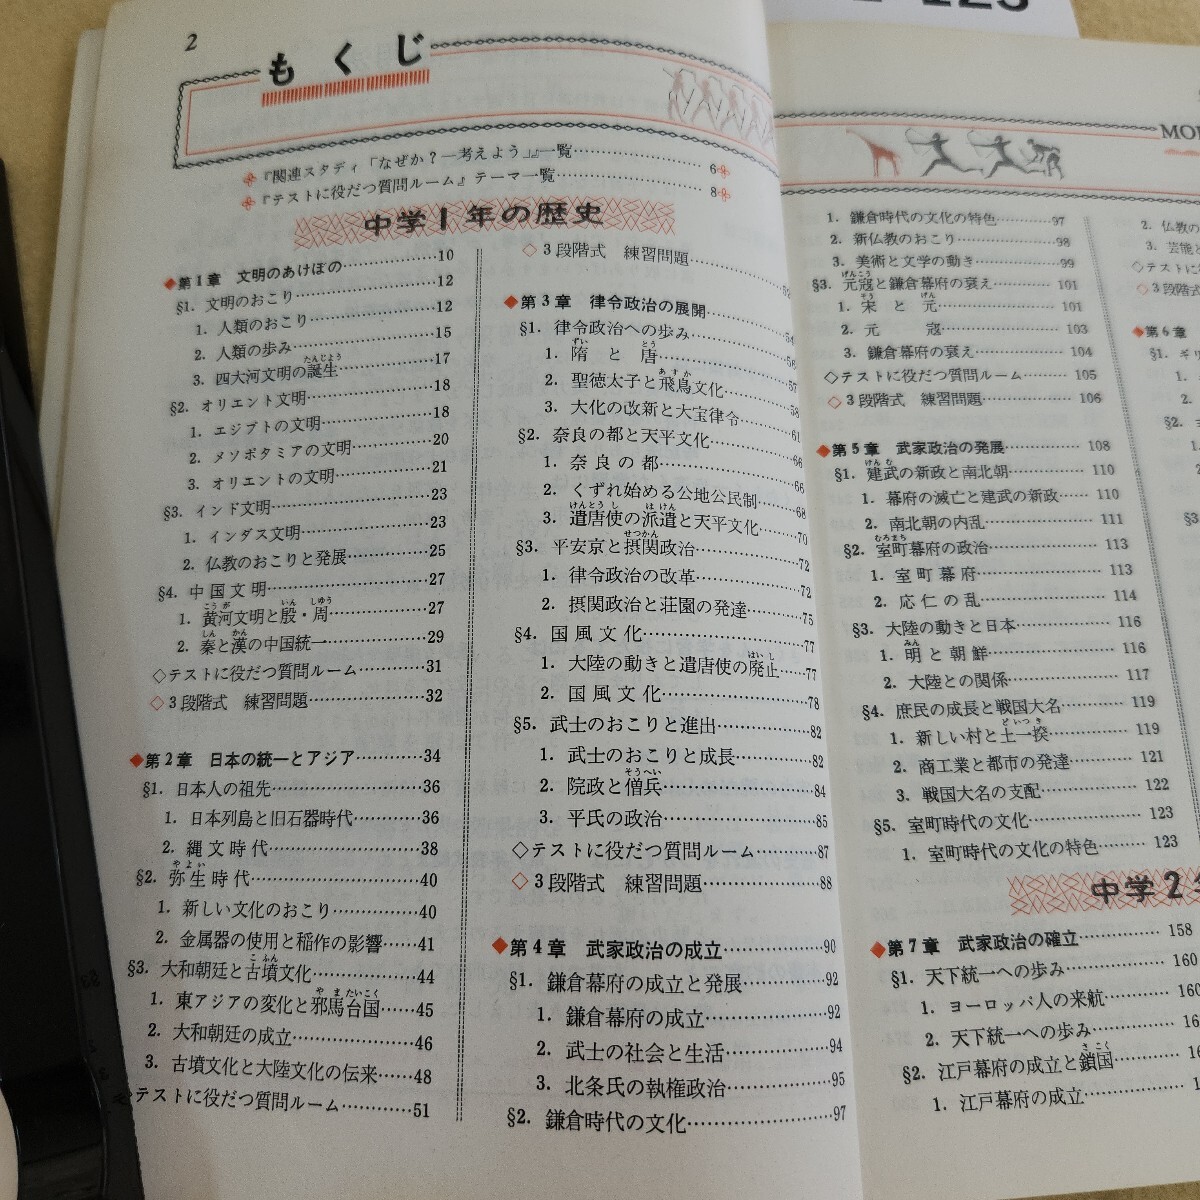 2
もくじ
『関連スタディ「なぜか？一考えよう」』一覧 6
『テストに役だつ質問ルーム』テーマ一覧 8
中学1年の歴史
◆第1章 文明のあけぼの 10
§1. 文明のおこり 12
1. 人類のおこり 12
2. 人類の歩み 15
3. 四大河文明の誕生 17
§2. オリエント文明 18
1. エジプトの文明 18
2. メソポタミアの文明 20
3. オリエントの文明 21
§3. インド文明 23
1. インダス文明 23
2. 仏教のおこりと発展 25
§4. 中国文明 27
1. 黄河文明と殷・周 27
2. 秦と漢の中国統一 29
◇テストに役だつ質問ルーム 31
◇3段階式 練習問題 32
◆第2章 日本の統一とアジア 34
§1. 日本人の祖先 36
1. 日本列島と旧石器時代 36
2. 縄文時代 38
§2. 弥生時代 40
1. 新しい文化のおこり 40
2. 金属器の使用と稲作の影響 41
§3. 大和朝廷と古墳文化 44
1. 東アジアの変化と邪馬台国 45
2. 大和朝廷の成立 46
3. 古墳文化と大陸文化の伝来 48
◇テストに役だつ質問ルーム 51
◇3段階式 練習問題 52
◆第3章 律令政治の展開 54
§1. 律令政治への歩み 56
1. 隋と唐 57
2. 聖徳太子と飛鳥文化 58
3. 大化の改新と大宝律令 61
§2. 奈良の都と天平文化 66
1. 奈良の都 66
2. くずれ始める公地公民制 68
3. 遣唐使の派遣と天平文化 70
§3. 平安京と摂関政治 72
1. 律令政治の改革 72
2. 摂関政治と荘園の発達 75
§4. 国風文化 77
1. 大陸の動きと遣唐使の廃止 77
2. 国風文化 78
§5. 武士のおこりと進出 82
1. 武士のおこりと成長 82
2. 院政と僧兵 84
3. 平氏の政治 85
◇テストに役だつ質問ルーム 87
◇3段階式 練習問題 88
◆第4章 武家政治の成立 90
§1. 鎌倉幕府の成立と発展 92
1. 鎌倉幕府の成立 92
2. 武士の社会と生活 94
3. 北条氏の執権政治 95
§2. 鎌倉時代の文化 97
1. 鎌倉時代の文化の特色 97
2. 新仏教のおこり 98
3. 美術と文学の動き 99
§3. 元寇と鎌倉幕府の衰え 101
1. 宋と元 101
2. 元寇 103
3. 鎌倉幕府の衰え 104
◇テストに役だつ質問ルーム 105
◇3段階式 練習問題 106
◆第5章 武家政治の発展 108
§1. 建武の新政と南北朝 110
1. 幕府の滅亡と建武の新政 110
2. 南北朝の内乱 111
§2. 室町幕府の政治 113
1. 室町幕府 113
2. 応仁の乱 114
§3. 大陸の動きと日本 116
1. 明と朝鮮 116
2. 大陸との関係 117
§4. 庶民の成長と戦国大名 119
1. 新しい村と土一揆 119
2. 商工業と都市の発達 121
3. 戦国大名の支配 122
§5. 室町時代の文化 123
1. 室町時代の文化の特色 123
中学2
◆第7章 武家政治の確立 158
§1. 天下統一への歩み 160
1. ヨーロッパ人の来航 160
2. 天下統一への歩み
§2. 江戸幕府の成立と鎖国
1. 江戸幕府の成立
2. 仏教の
3. 芸能と
◇テストに
◇3段階式
◆第6章
§1. ギリ
1.
2.
§2.
1.